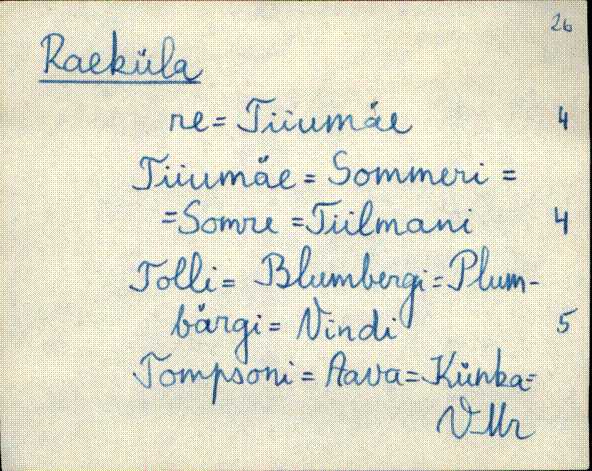 26
Raeküla
re = Tiiumäe 4
Tiiumäe = Sommeri =
= Somre = Tiilmani 4
Tolli = Blumbergi = Plum-
bärgi = Vindi 5
Tompsoni = Aava = Künka=
V-Mr